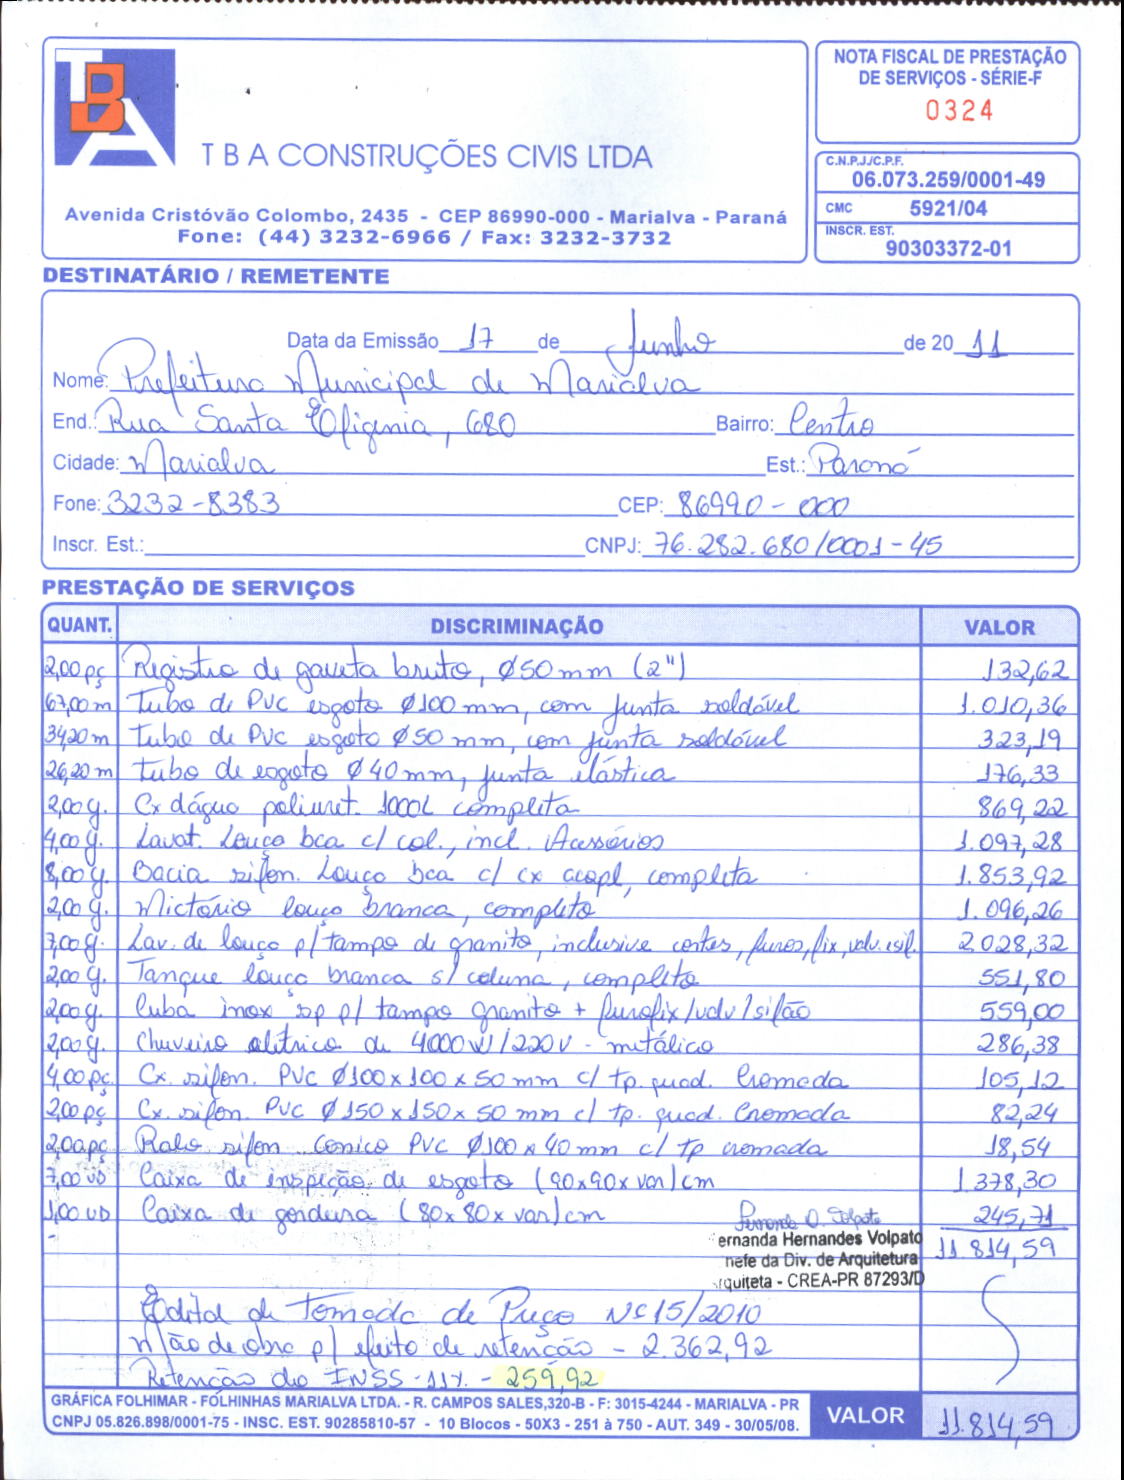 TBA
T B A CONSTRUÇÕES CIVIS LTDA
Avenida Cristóvão Colombo, 2435 - CEP 86990-000 - Marialva - Paraná
Fone: (44) 3232-6966 / Fax: 3232-3732
NOTA FISCAL DE PRESTAÇÃO
DE SERVIÇOS - SÉRIE-F
0324
C.N.P.J./C.P.F.
06.073.259/0001-49
CMC 5921/04
INSCR. EST.
90303372-01
DESTINATÁRIO / REMETENTE
Data da Emissão 17 de Junho de 20 11
Nome: Prefeitura Municipal de Marialva
End.: Rua Santa Efigenia, 680 Bairro: Centro
Cidade: Marialva Est.: Paraná
Fone: 3232-8383 CEP: 86990-000
Inscr. Est.: CNPJ: 76.282.680/0001-45
PRESTAÇÃO DE SERVIÇOS
QUANT. DISCRIMINAÇÃO VALOR
2,00 pç Registro de gaveta bruto, Ø50mm (2") 132,62
67,00 m Tubo de PVC esgoto Ø100 mm, com junta soldável 1.010,36
34,20 m Tubo de PVC esgoto Ø50 mm, com junta soldável 323,19
26,20 m Tubo de esgoto Ø40mm, junta elástica 176,33
2,00 g. Cx dágua poliuret. 1000L completa 869,22
4,00 g. Lavat. Louça bca c/ col., incl. Acessórios 1.097,28
8,00 g. Bacia sifon. Louça bca c/ cx acopl, completa 1.853,92
2,00 g. Mictório louça branca, completo 1.096,26
7,00 g. Lav. de louça p/ tampo de granito, inclusive cortes, furos, fix, valv. e sif. 2.028,32
2,00 g. Tanque louça branca s/ coluna, completo 551,80
2,00 g. Cuba inox sp p/ tampo granito + furo/fix/valv/sifão 559,00
2,00 g. Chuveiro elétrico de 4000W/220V - metálico 286,38
4,00 pç. Cx. sifon. PVC Ø100x100x50mm c/ tp. quad. Cromada 105,12
2,00 pç Cx. sifon. PVC Ø150x150x50 mm c/ tp. quad. Cromada 82,24
2,00 pç Ralo sifon conico PVC Ø100x40mm c/ tp cromada 18,54
7,00 UD Caixa de inspeção de esgoto (90x90x var) cm 1.378,30
1,00 UD Caixa de gordura (80x80x var) cm 245,71
11.814,59
ernanda Hernandes Volpato
hefe da Div. de Arquitetura
rquiteta - CREA-PR 87293/D
Edital de Tomada de Preço Nº 15/2010
Mão de obra p/ efeito de retenção - 2.362,92
Retenção do INSS - 11% - 259,92
GRÁFICA FOLHIMAR - FOLHINHAS MARIALVA LTDA. - R. CAMPOS SALES,320-B - F: 3015-4244 - MARIALVA - PR
CNPJ 05.826.898/0001-75 - INSC. EST. 90285810-57 - 10 Blocos - 50X3 - 251 à 750 - AUT. 349 - 30/05/08.
VALOR 11.814,59